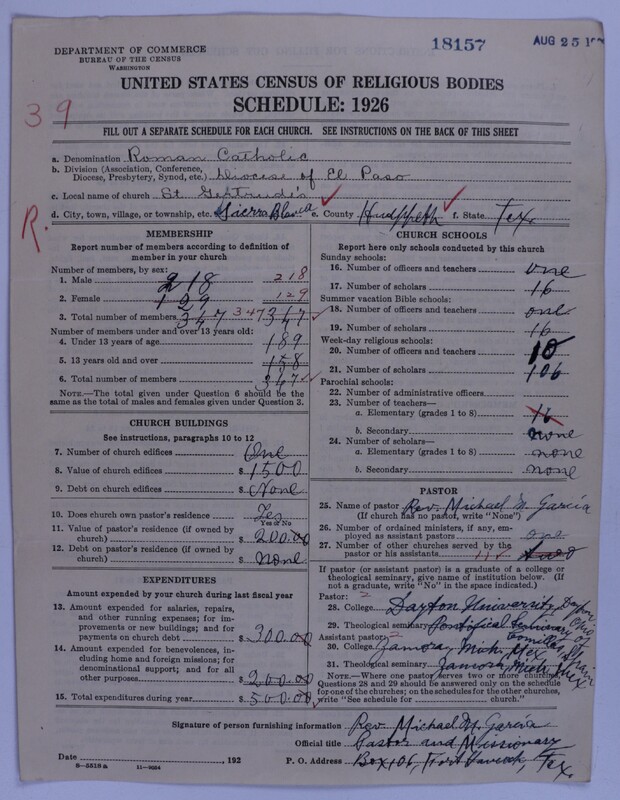 18157
AUG 25 1
DEPARTMENT OF COMMERCE
BUREAU OF THE CENSUS
WASHINGTON
39
UNITED STATES CENSUS OF RELIGIOUS BODIES
SCHEDULE: 1926
FILL OUT A SEPARATE SCHEDULE FOR EACH CHURCH. SEE INSTRUCTIONS ON THE BACK OF THIS SHEET
a. Denomination Roman Catholic
b. Division (Association, Conference, Diocese, Presbytery, Synod, etc.) Diocese of El Paso
c. Local name of church St. Gertrude's
R.
d. City, town, village, or township, etc. Sierra Blanca e. County Hudspeth f. State Tex.
MEMBERSHIP
Report number of members according to definition of
member in your church
Number of members, by sex:
1. Male 218 218
2. Female 129 129
3. Total number of members 347 347 347
Number of members under and over 13 years old:
4. Under 13 years of age 189
5. 13 years old and over 158
6. Total number of members 347
NOTE.—The total given under Question 6 should be the
same as the total of males and females given under Question 3.
CHURCH BUILDINGS
See instructions, paragraphs 10 to 12
7. Number of church edifices One
8. Value of church edifices $ 1500
9. Debt on church edifices $ None
10. Does church own pastor's residence Yes
Yes or No
11. Value of pastor's residence (if owned by
church) $ 200.00
12. Debt on pastor's residence (if owned by
church) $ None
EXPENDITURES
Amount expended by your church during last fiscal year
13. Amount expended for salaries, repairs,
and other running expenses; for im-
provements or new buildings; and for
payments on church debt $ 300.00
14. Amount expended for benevolences, in-
cluding home and foreign missions; for
denominational support; and for all
other purposes $ 200.00
15. Total expenditures during year $ 500.00
CHURCH SCHOOLS
Report here only schools conducted by this church
Sunday schools:
16. Number of officers and teachers one
17. Number of scholars 16
Summer vacation Bible schools:
18. Number of officers and teachers one
19. Number of scholars 16
Week-day religious schools:
20. Number of officers and teachers 10
21. Number of scholars 106
Parochial schools:
22. Number of administrative officers
23. Number of teachers—
a. Elementary (grades 1 to 8) 16
b. Secondary none
24. Number of scholars—
a. Elementary (grades 1 to 8) none
b. Secondary none
PASTOR
25. Name of pastor Rev. Michael M. García
(If church has no pastor, write "None")
26. Number of ordained ministers, if any, em-
ployed as assistant pastors one
27. Number of other churches served by the
pastor or his assistants two
If pastor (or assistant pastor) is a graduate of a college or
theological seminary, give name of institution below. (If
not a graduate, write "No" in the space indicated.)
Pastor: 2
28. College Dayton University, Dayton, Ohio
29. Theological seminary Pontifical Seminary of Comillas, Spain
Assistant pastor: 2
30. College Zamora, Mich. Mex
31. Theological seminary Zamora, Mich. Mex
NOTE.—Where one pastor serves two or more churches,
Questions 28 and 29 should be answered only on the schedule
for one of the churches; on the schedules for the other churches,
write "See schedule for church."
Signature of person furnishing information Rev. Michael M. García
Official title Pastor and Missionary
Date , 192 P. O. Address Box 106, Fort Hancock, Tex.
8-5518 a 11-9034